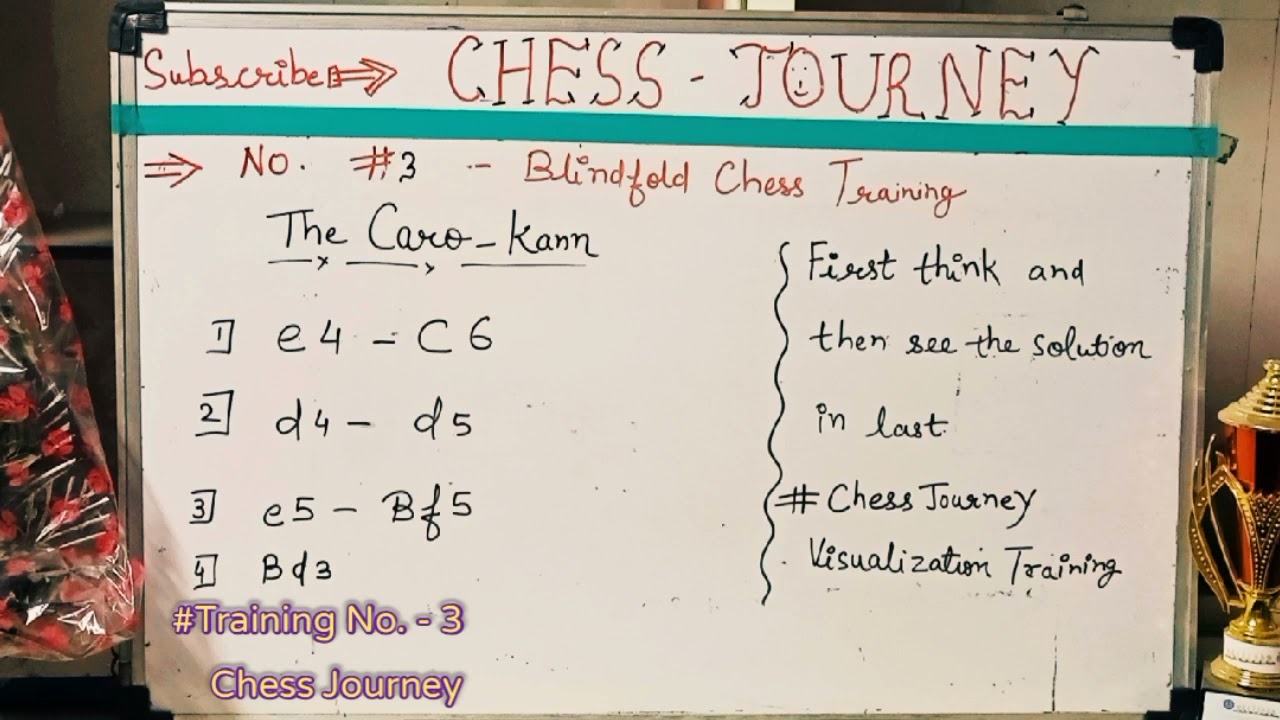 Subscribe ⇒ CHESS - JOURNEY
⇒ No. #3 - Blindfold Chess Training
The Caro-Kann
1] e4 - C6
2] d4 - d5
3] e5 - Bf5
4] Bd3
First think and
then see the solution
in last
# Chess Journey
Visualization Training
#Training No. - 3
Chess Journey